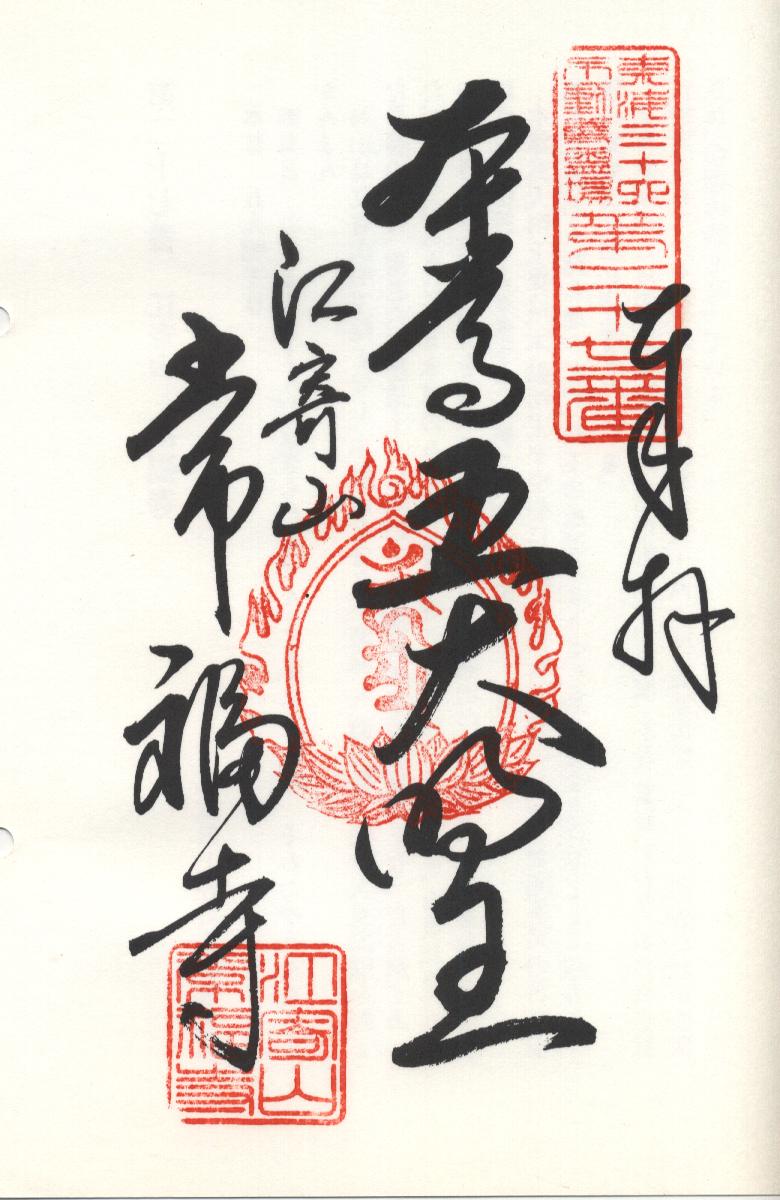 東海三十六
不動尊靈場
第二十七番
奉拝
本尊五大明王
江寄山
常福寺
江寄山
常福寺